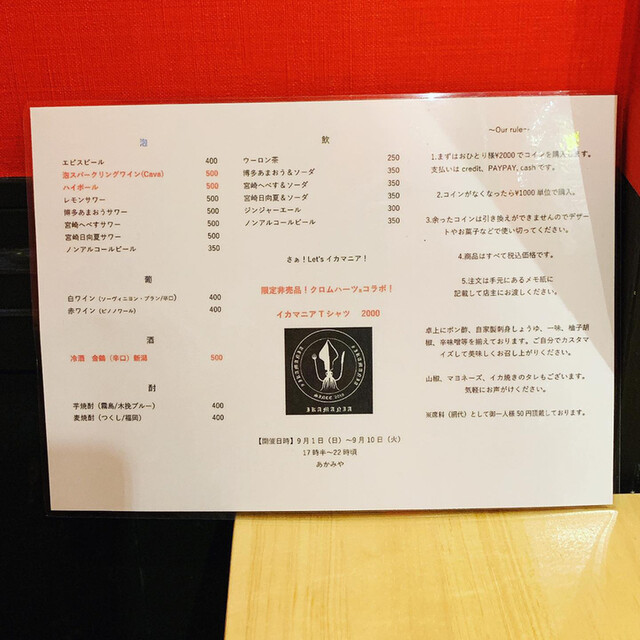 泡
エビスビール 400
泡スパークリングワイン(Cava) 500
ハイボール 500
レモンサワー 500
博多あまおうサワー 500
宮崎へべすサワー 500
宮崎日向夏サワー 500
ノンアルコールビール 350
葡
白ワイン (ソーヴィニヨン・ブラン/辛口) 400
赤ワイン (ピノノワール) 400
酒
冷酒 金鶴（辛口）新潟 500
酎
芋焼酎 (霧島/木挽ブルー) 400
麦焼酎 (つくし/福岡) 400
飲
ウーロン茶 250
博多あまおう＆ソーダ 350
宮崎へべす＆ソーダ 350
宮崎日向夏＆ソーダ 350
ジンジャーエール 300
ノンアルコールビール 350
さぁ！Let's イカマニア！
限定非売品！クロムハーツsコラボ！
イカマニアTシャツ 2000
IKAMANIA
IKAMANIA
SINCE
IKAMANIA
【開催日時】9月1日（日）～9月10日（火）
17時半～22時頃
あかみや
～Our rule～
1.まずはおひとり様¥2000でコインを購入します。
支払いは credit、PAYPAY、cash です。
2.コインがなくなったら¥1000 単位で購入。
3.余ったコインは引き換えができませんのでデザー
トやお菓子などで使い切ってください。
4.商品はすべて税込価格です。
5.注文は手元にあるメモ紙に
記載して店主にお渡しください。
卓上にポン酢、自家製刺身しょうゆ、一味、柚子胡
椒、辛味噌等を揃えております。ご自分でカスタマ
イズして美味しくお召し上がりください。
山椒、マヨネーズ、イカ焼きのタレもございます。
気軽にお声がけください。
※席料（網代）として御一人様 50 円頂戴しております。